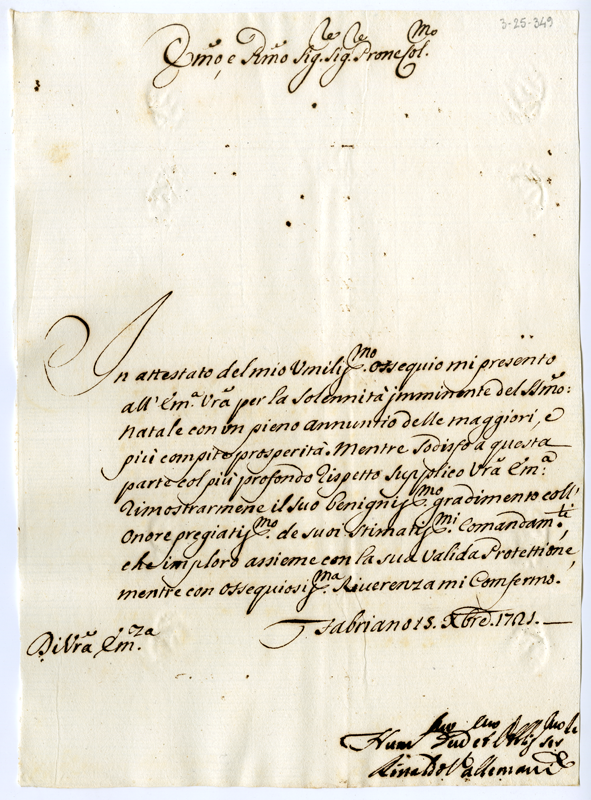 3-25-349
Em̃o, e Rm̃o Sig.re Sig.re Prone Col.mo
In attestato del mio Umiliss.mo ossequio mi presento
all' Em.a Vrã per la Solennità imminente del SSm̃o:
Natale con un pieno annuntio delle maggiori, e
più compite prosperità. Mentre Sodisfo a questa
parte col più profondo Rispetto supplico Vrã Em.a
Rimostrarmene il suo benigniss.mo gradimento coll'
Onore pregiatiss.mo de suoi stimatiss.mi Comandam.ti,
che imploro assieme con la sua valida Protettione,
mentre con ossequiosiss.ma Riverenza mi Confermo.
Di Vrã Em.za
Fabriano 15. Xbre. 1721.
Hum.mo Dev.mo et Obblig.mo Ser.re
Rinaldo Vallemani